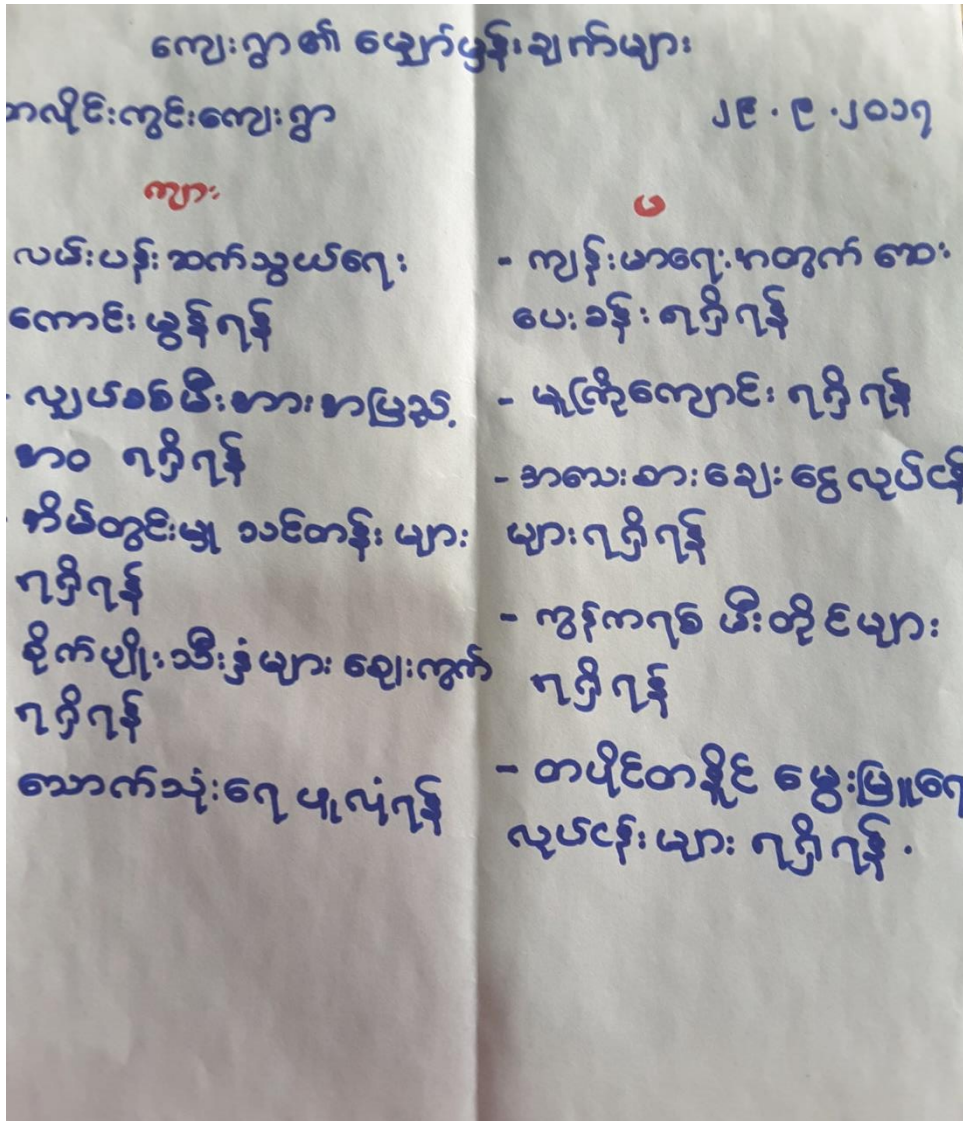 ကျေးရွာ၏ မျှော်မှန်းချက်များ
ဘလိုင်းကွင်းကျေးရွာ
၂၉.၉.၂၀၁၇
ကျား
လမ်းပန်းဆက်သွယ်ရေး
ကောင်းမွန်ရန်
- လျှပ်စစ်မီးအားအမြဲသုံး
ဘဝ ရရှိရန်
- အိမ်တွင်းမှု သင်တန်းများ
ရရှိရန်
စိုက်ပျိုးသီးနှံများ ဈေးကွက်
ရရှိရန်
သောက်သုံးရေ ဖူလုံရန်
မ
- ကျန်းမာရေးအတွက် ဆေး
ပေးခန်း ရရှိရန်
- မူကြိုကျောင်း ရရှိရန်
- အသေးစား ချေးငွေလုပ်ငန်း
များ ရရှိရန်
- ကွန်ကရစ် မီးတိုင်များ
ရရှိရန်
- တပိုင်တနိုင် မွေးမြူရေး
လုပ်ငန်းများ ရရှိရန်.